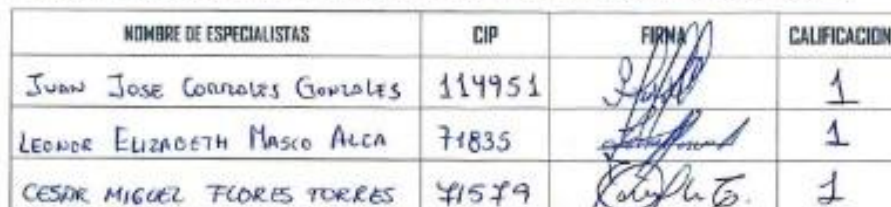 NOMBRE DE ESPECIALISTAS CIP FIRMA CALIFICACION
JUAN JOSE CORRALES GONZALES 114951 1
LEONOR ELIZABETH MASCO ALCA 71835 1
CESAR MIGUEL FLORES TORRES 71579 1